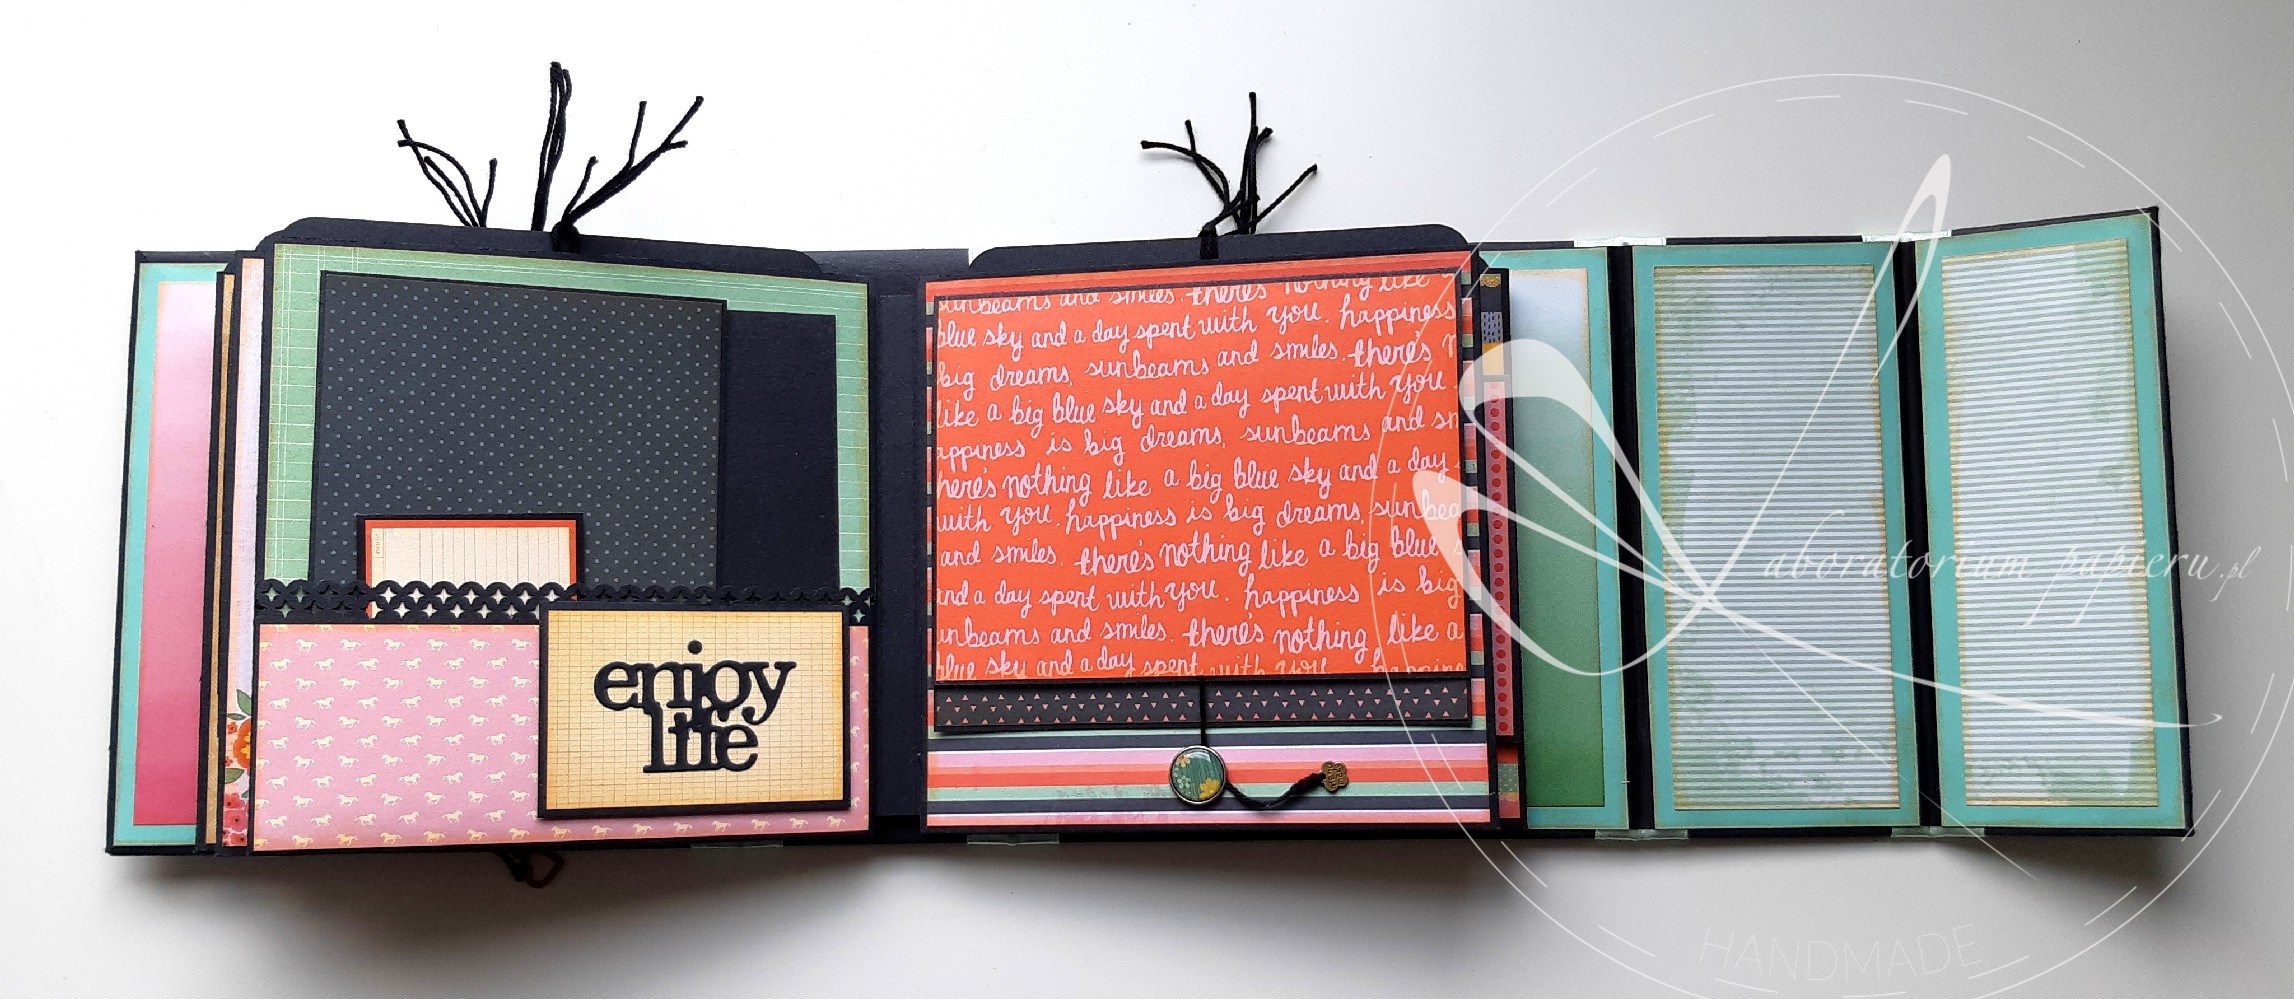 enjoy
life
sunbeams and smiles. there's nothing like
blue sky and a day spent with you. happiness
big dreams, sunbeams and smiles. there's
like a big blue sky and a day spent with you.
appiness is big dreams, sunbeams and sm
here's nothing like a big blue sky and a day
with you. happiness is big dreams, sunbea
and smiles. there's nothing like a big blue
and a day spent with you. happiness is big
unbeams and smiles. there's nothing like a
blue sky and a day spent with you. happine
Laboratorium papieru.pl
HANDMADE